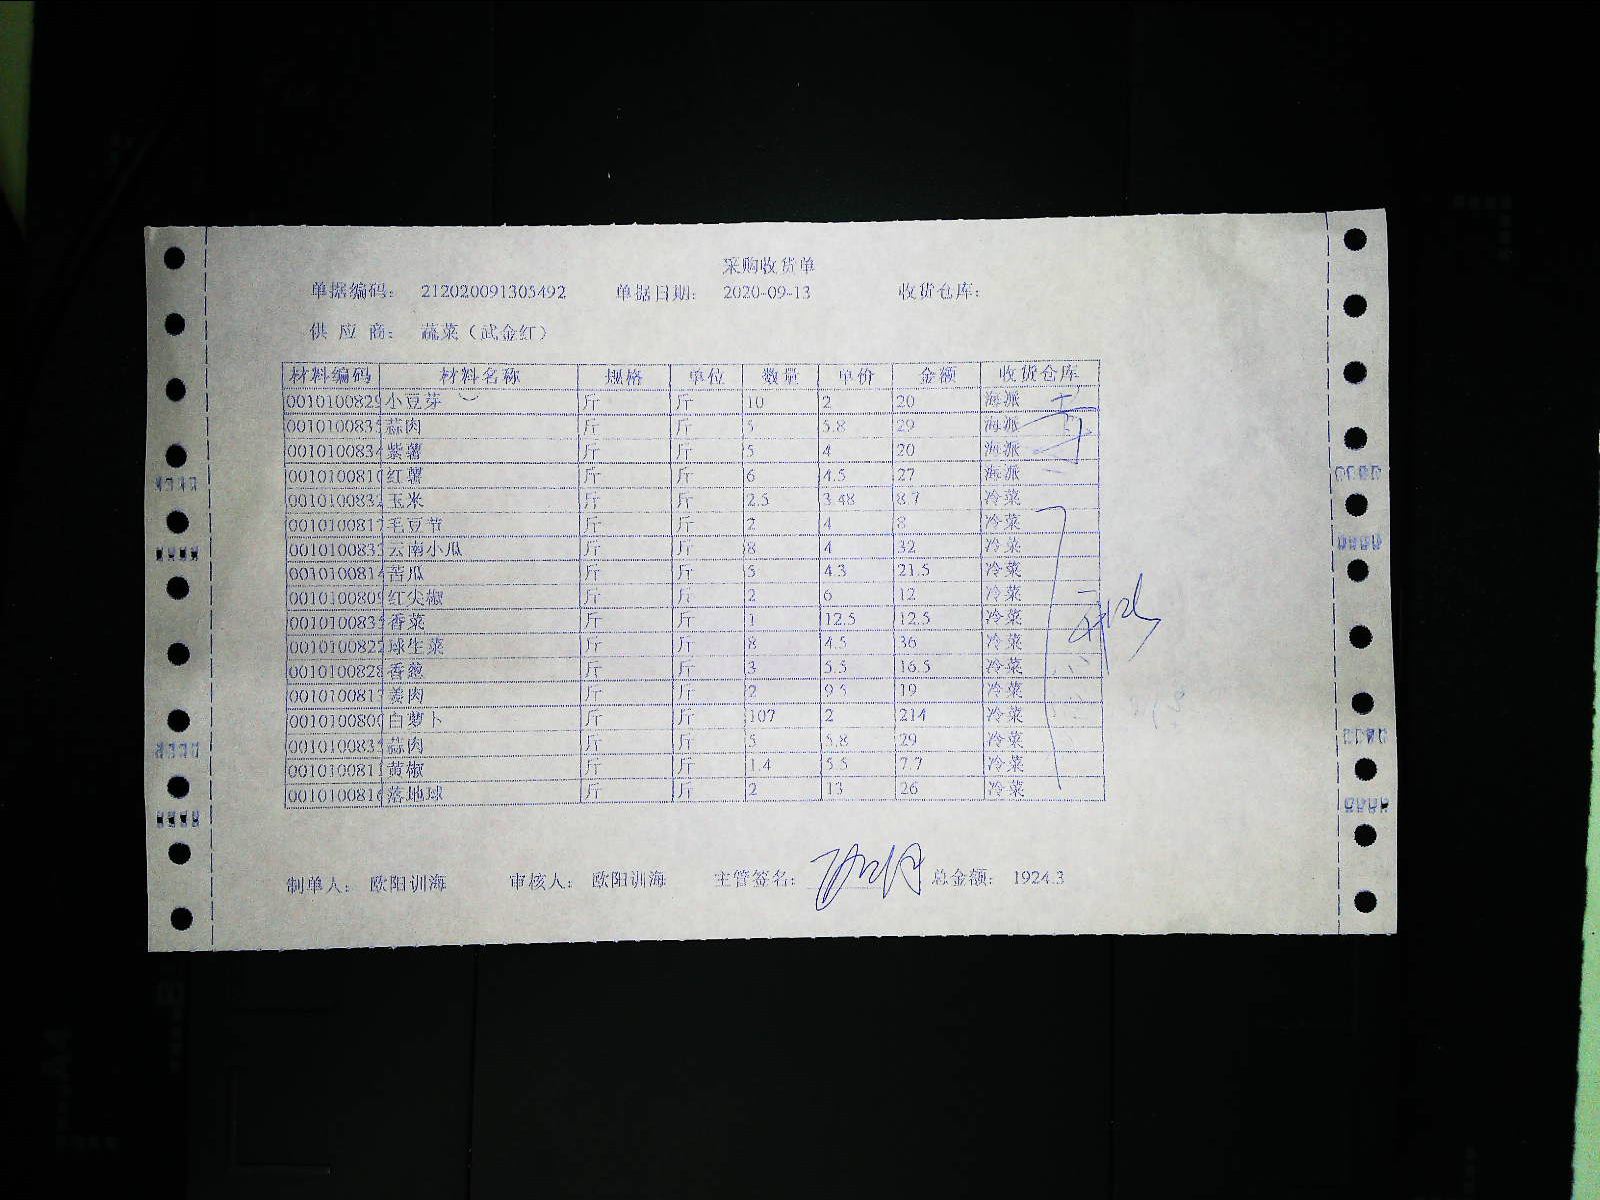 采购收货单
单据编码： 212020091305492 单据日期： 2020-09-13 收货仓库：
供 应 商： 蔬菜（武金红）
材料编码 材料名称 规格 单位 数量 单价 金额 收货仓库
0010100829 小豆芽 斤 斤 10 2 20 海派
001010083 蒜肉 斤 斤 5 5.8 29 海派
001010083 紫薯 斤 斤 5 4 20 海派
001010081 红薯 斤 斤 6 4.5 27 海派
001010083 玉米 斤 斤 2.5 3.48 8.7 冷菜
001010081 毛豆节 斤 斤 2 4 8 冷菜
001010083 云南小瓜 斤 斤 8 4 32 冷菜
001010081 苦瓜 斤 斤 5 4.3 21.5 冷菜
001010080 红尖椒 斤 斤 2 6 12 冷菜
001010083 香菜 斤 斤 1 12.5 12.5 冷菜
001010082 球生菜 斤 斤 8 4.5 36 冷菜
001010082 香葱 斤 斤 3 5.5 16.5 冷菜
001010081 姜肉 斤 斤 2 9.5 19 冷菜
001010080 白萝卜 斤 斤 107 2 214 冷菜
001010083 蒜肉 斤 斤 5 5.8 29 冷菜
001010081 黄椒 斤 斤 1.4 5.5 7.7 冷菜
001010081 落地球 斤 斤 2 13 26 冷菜
制单人： 欧阳训海 审核人： 欧阳训海 主管签名： 总金额： 1924.3